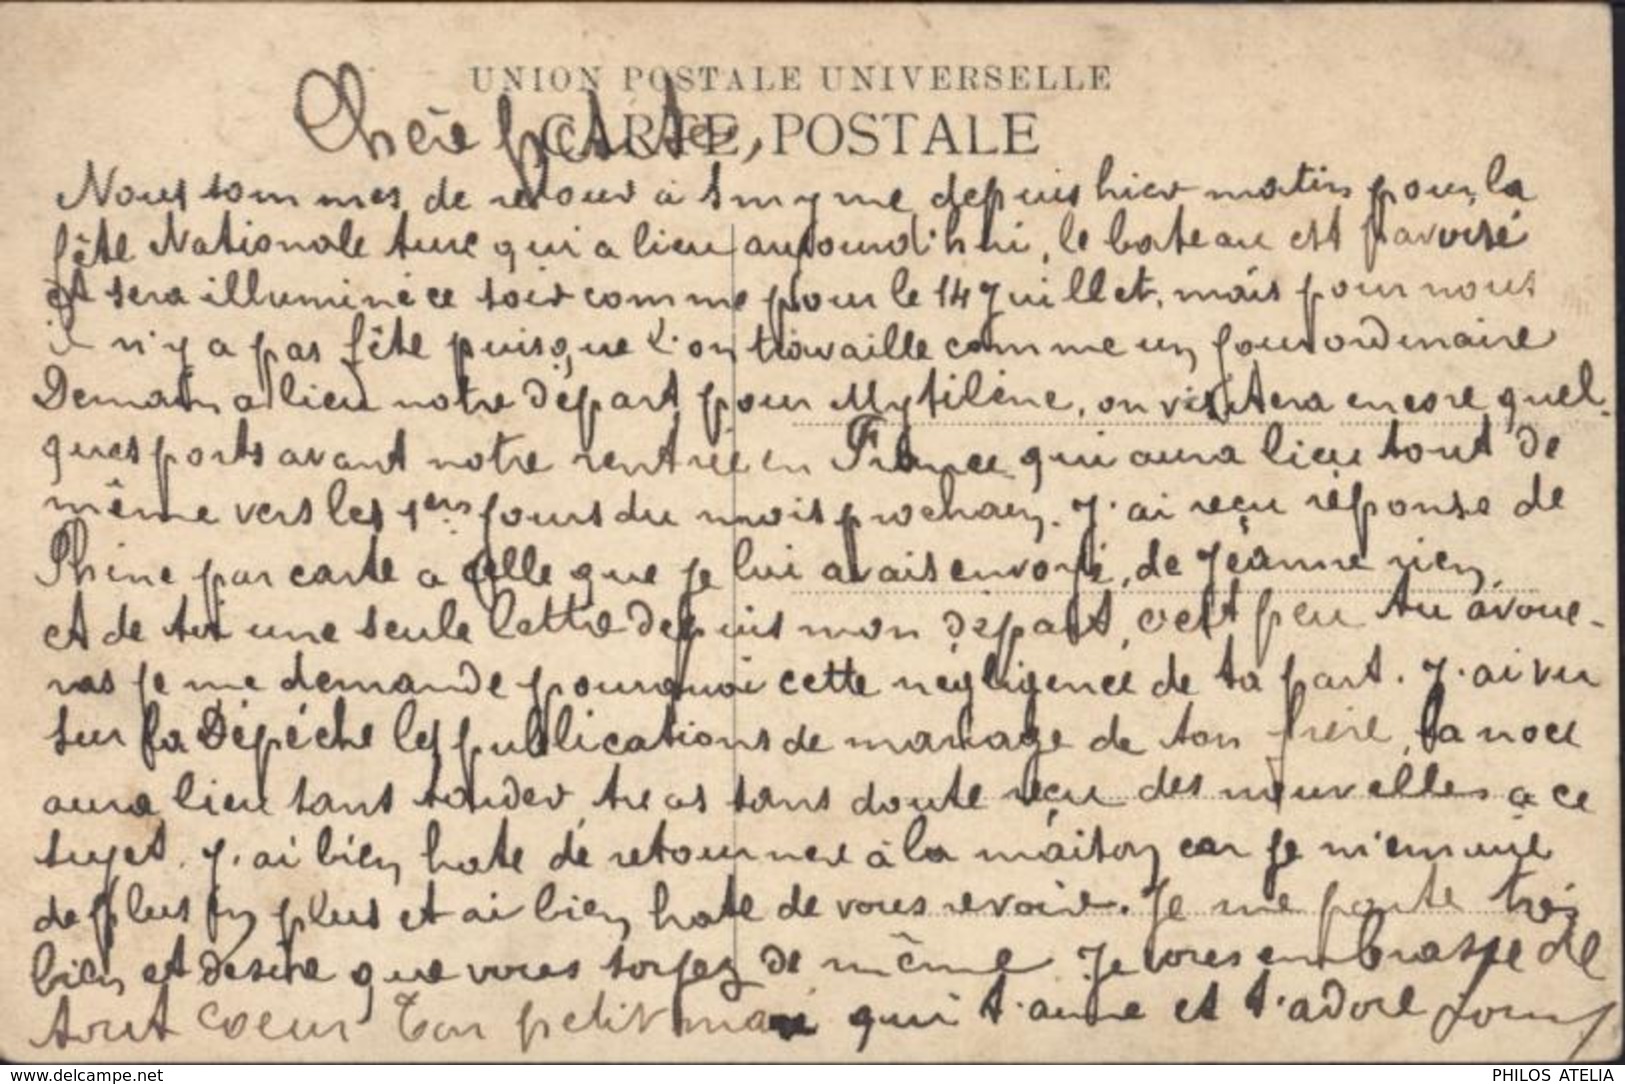 UNION POSTALE UNIVERSELLE
CARTE POSTALE
Chère petite,
Nous sommes de retour à Smyrne depuis hier matin pour la
fête Nationale turc qui a lieu aujourd'hui, le bateau est pavoisé
et sera illuminé ce soir comme pour le 14 Juillet, mais pour nous
il n'y a pas fête puisque l'on travaille comme un jour ordinaire
Demain a lieu notre départ pour Mytilène, on visitera encore quel-
ques ports avant notre rentrée en France qui aura lieu tout de
même vers les 1ers jours du mois prochain. J'ai reçu réponse de
Phine par carte a celle que je lui avais envoyé, de Jeanne rien,
et de toi une seule lettre depuis mon départ, c'est peu tu avoue-
ras je me demande pourquoi cette négligence de ta part. J'ai vu
sur la Dépêche les publications de mariage de ton frère, la noce
aura lieu sans tarder, tu as sans doute reçu des nouvelles a ce
sujet. J'ai bien hate de retourner à la maison car je m'ennuie
de plus en plus et ai bien hate de vous revoir. Je me porte très
bien et désire que vous soyez de même Je vous embrasse de
tout coeur Ton petit mari qui t'aime et t'adore
www.delcampe.net
PHILOS ATELIA